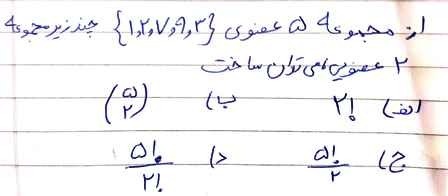 از مجموعه ۵ عضوی {۱,۲,۷,۹,۳} چند زیر مجموعه
۲ عضویی می توان ساخت
الف) ۲! ب) (۵ ۲)
ج) ۵!/۲ د) ۵!/۲!